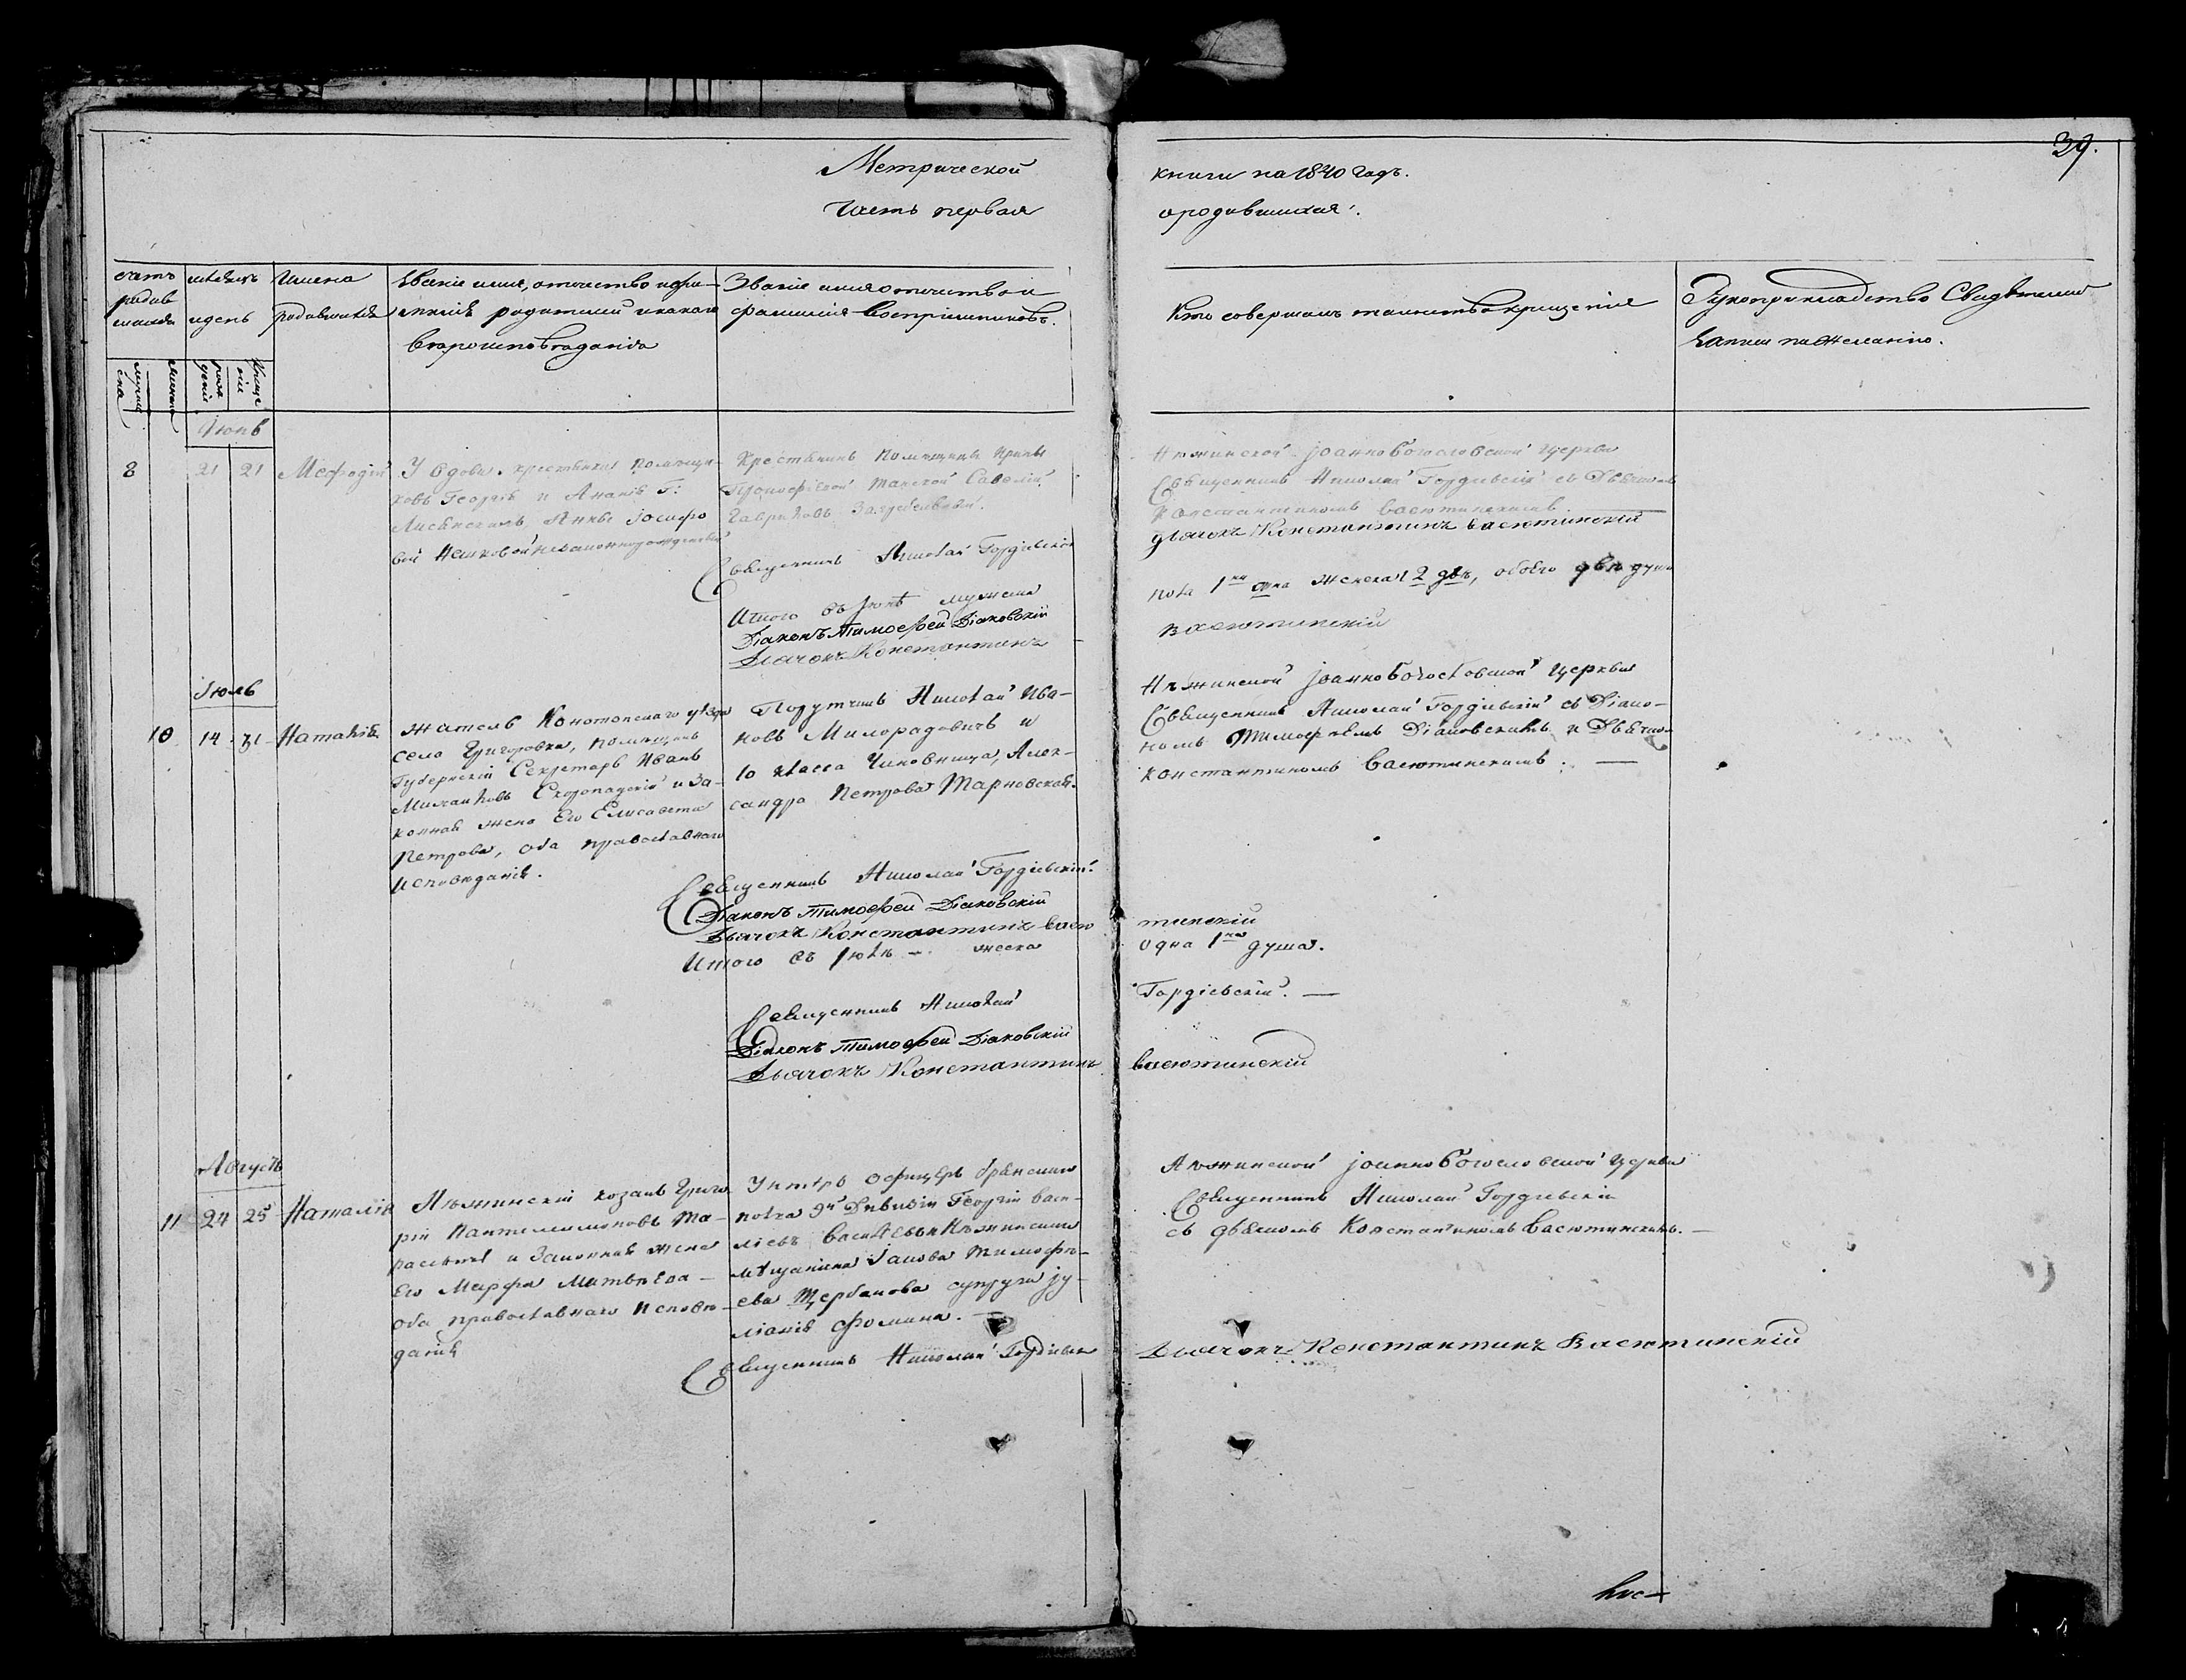 39.
Метрической
Часть первая
книги на 1840 годъ.
о родившихся.
счетъ родив шихся
мѣсяцъ и день
Имена родившихся
Званіе имя, отчество и фа-
милія родителей и какого
вѣроисповѣданія
Званіе имя отчество и
фамилія воспріемниковъ.
Кто совершалъ таинство крещенія
Рукоприкладство Свидѣтелей
записи по желанію.
рож деній
Креще нія
Іюнь
8
21
21
Мефодій
У вдовы крестьянки помѣщи-
ковъ Георгія и Ананія Г:
Анны Іосифо
вой незаконнорожденный
Крестьянинъ помѣщицы Ирины
Савелій
Гавриловъ
Нѣжинской Іоанно Богословской Церкви
Священникъ Николай Гордіевскій съ Дьячкомъ
Константиномъ Васютинскимъ.
Дьячокъ Константинъ Васютинскій
Священникъ Николай Гордіевскій
Итого въ Іюнѣ мужска
пола 1на женска 2 двѣ, обоего двѣ душ
Діаконъ Тимофей Діаковскій
Дьячокъ Константинъ
Васютинскій
Іюль
10
14
31
Наталія
житель Конотопскаго уѣзда
село Григоровка, помѣщикъ
Губернскій Секретарь Иванъ
Михайловъ Скоропадскій и за-
конная жена Его Елисавета
Петрова, оба православнаго
исповѣданія.
Порутчикъ Николай Ива-
новъ Милорадовичъ и
10 класса Чиновница, Алек-
сандра Петрова Тарновская.
Нѣжинской Іоанно Богословской Церкви
Священникъ Николай Гордіевскій съ Діако-
номъ Тимофеемъ Діаковскимъ и Дьячко
Константиномъ Васютинскимъ. —
Священникъ Николай Гордіевскій.
Діаконъ Тимофей Діаковскій
Дьячокъ Константинъ Васю
тинскій
Итого въ Іюлѣ — женска
одна 1на душа.
Священникъ Николай
Гордіевскій. —
Діаконъ Тимофей Діаковскій
Дьячокъ Константинъ
Васютинскій
Августъ
11
24
25
Наталія
Нѣжинскій козакъ Григо
рій Пантелимоновъ Та-
и Законная жена
Его Марфа Матвѣева —
оба православнаго исповѣ-
данія
Унтеръ офицеръ Брянскаго
полка 9й Дивизіи Георгій Васи-
ліевъ Васильевъ и Нѣжинскаго
мѣщанина Іакова Тимофѣ-
ева Щербакова супруга Іу-
ліанія Фомина.
Нѣжинской Іоанно Богословской Церкви
Священникъ Николай Гордіевскій
съ дьячкомъ Константиномъ Васютинскимъ. —
Священникъ Николай Гордіевск
Дьячокъ Константинъ Васютинскій